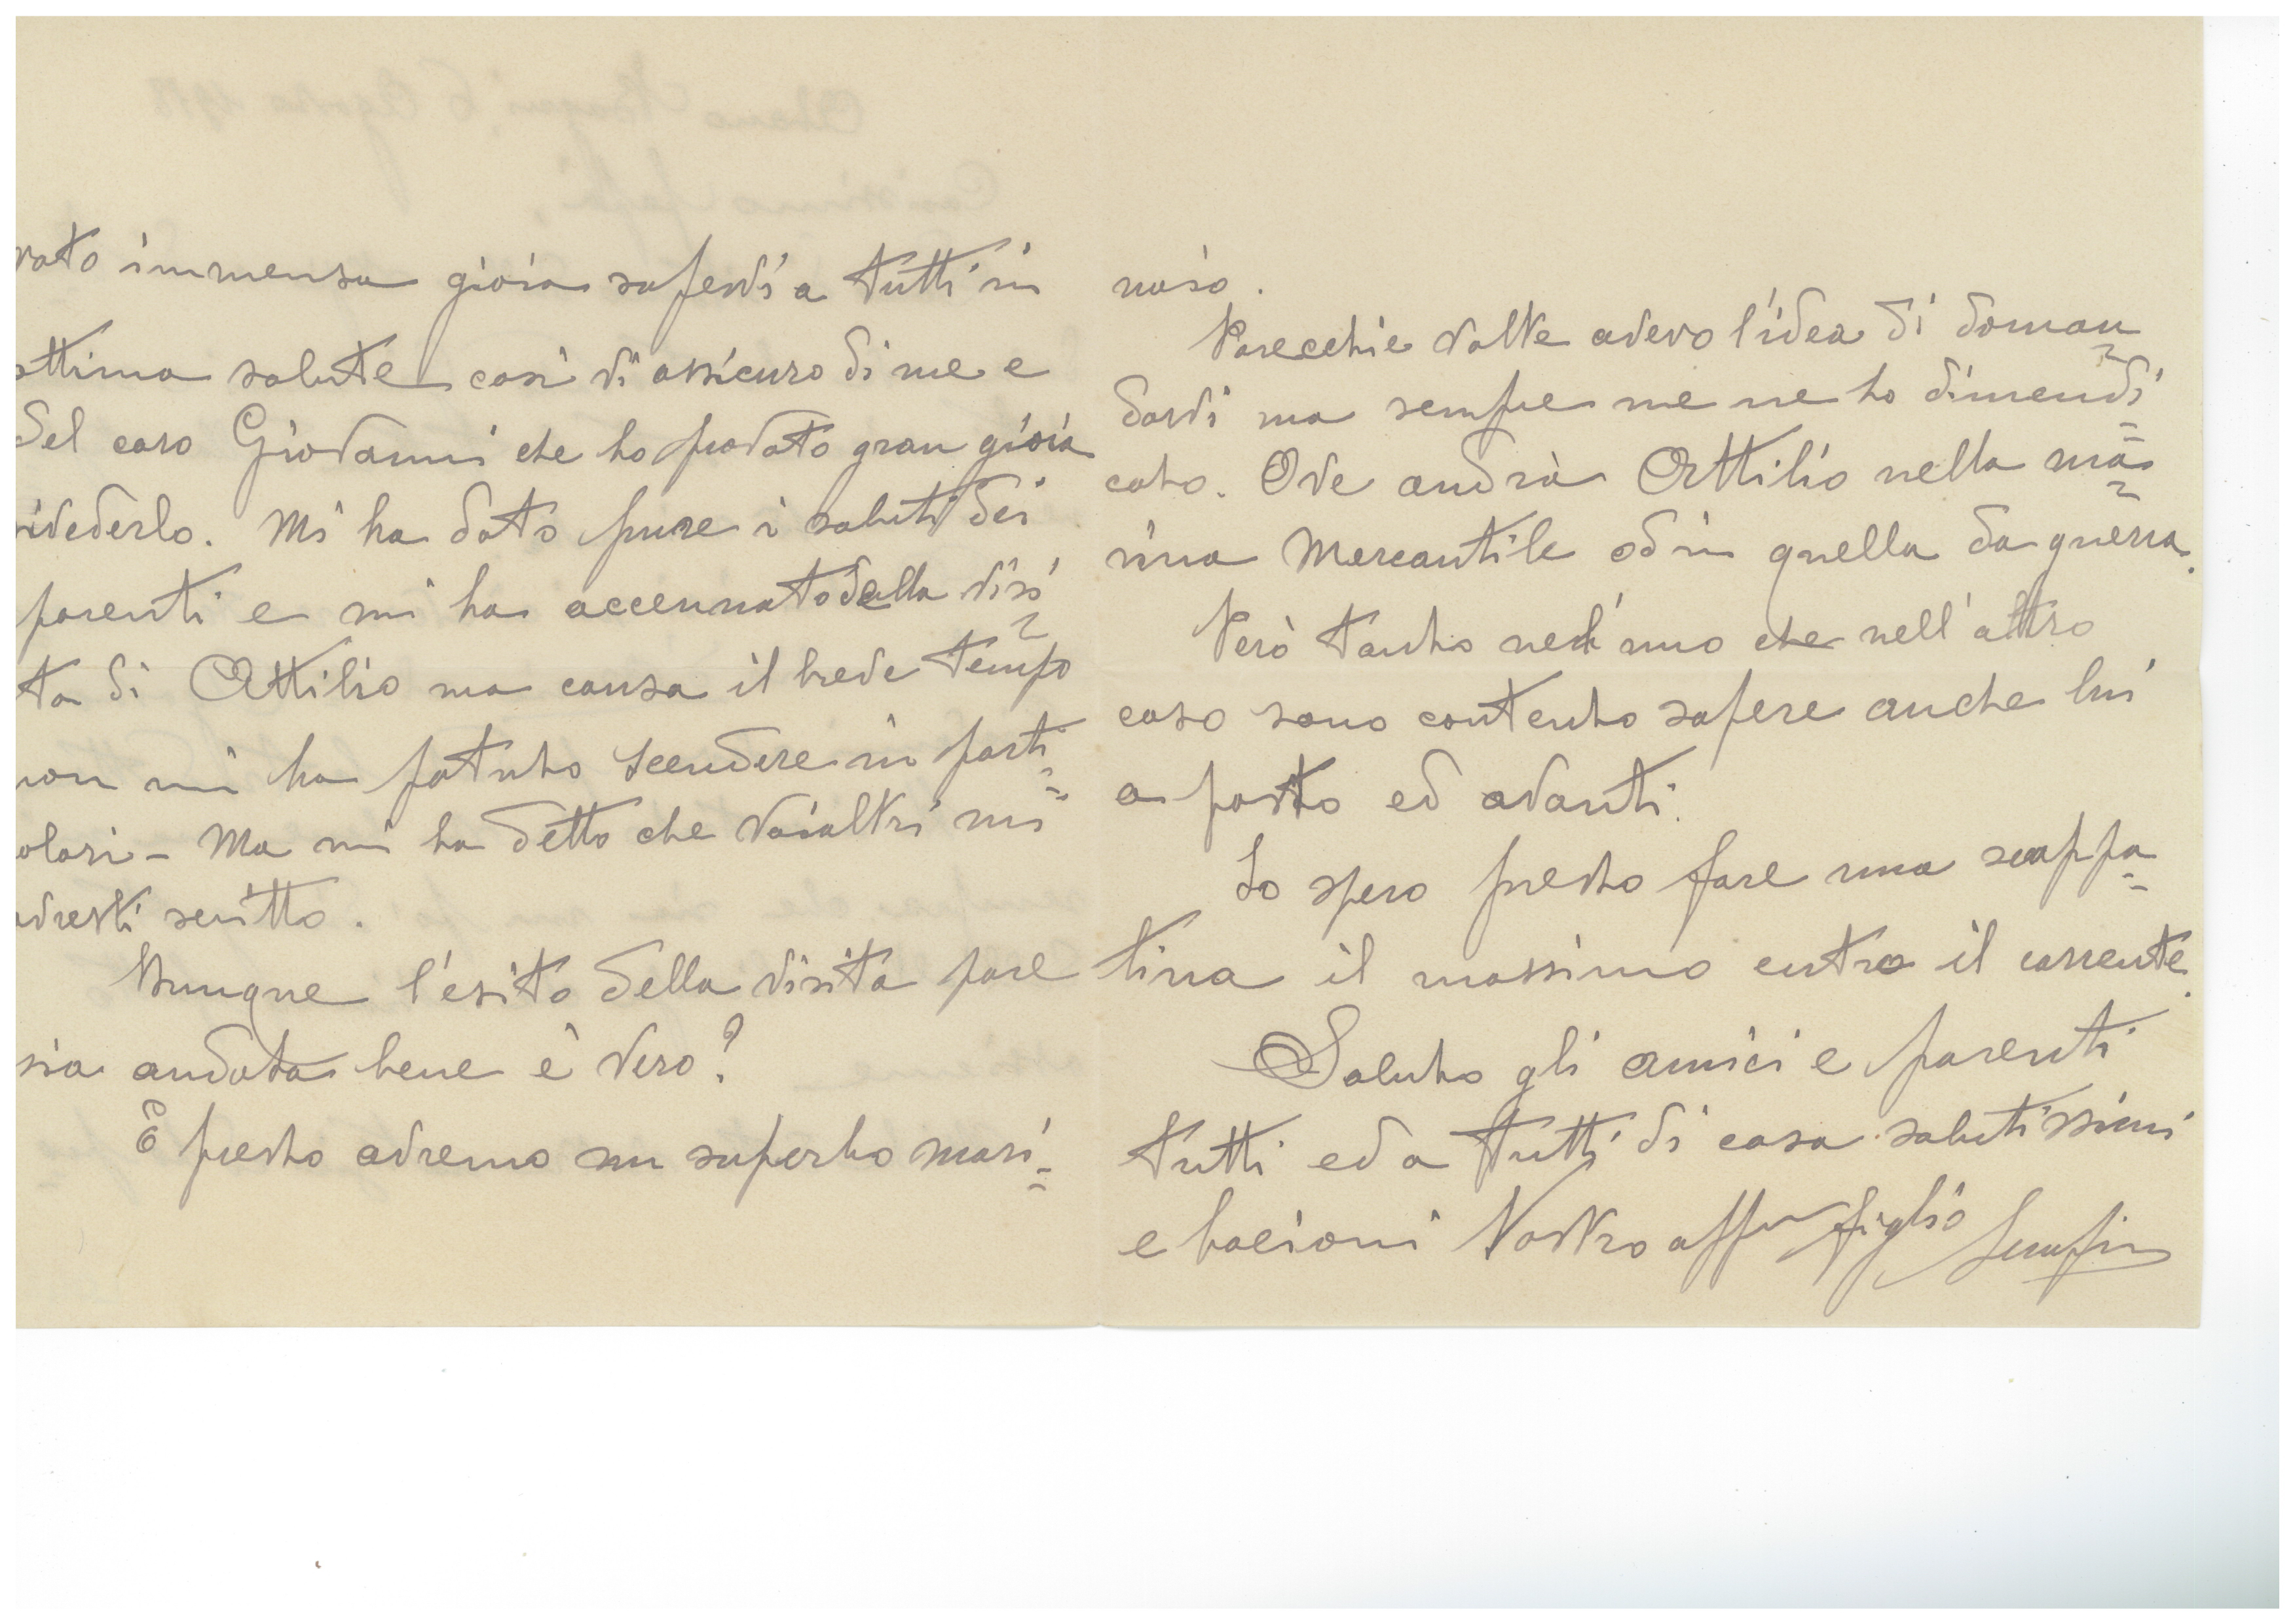 vato immensa gioia sapervi a tutti in
ottima salute così vi assicuro di me e
del caro Giovanni che ho provato gran gioia
rivederlo. Mi ha dato pure i saluti dei
parenti e mi ha accennato della visi
ta di Attilio ma causa il breve tempo
non mi ha potuto scendere in parti=
olari - Ma mi ha detto che voialtri mi
avresti scritto.
Dunque l'esito della visita pare
sia andata bene è vero?
E presto avremo un superbo mari=
naio.
Parecchie volte avevo l'idea di doman
darvi ma sempre me ne ho dimendi=
cato. Ove andrà Attilio nella ma=
rina Mercantile od in quella da guerra.
Però tanto nell'uno che nell'altro
caso sono contento sapere anche lui
a posto ed avanti.
Io spero presto fare una scappa=
tina il massimo entro il corrente.
Saluto gli amici e parenti
tutti ed a tutti di casa salutissimi
e bacioni Vostro affmo figlio Serafino